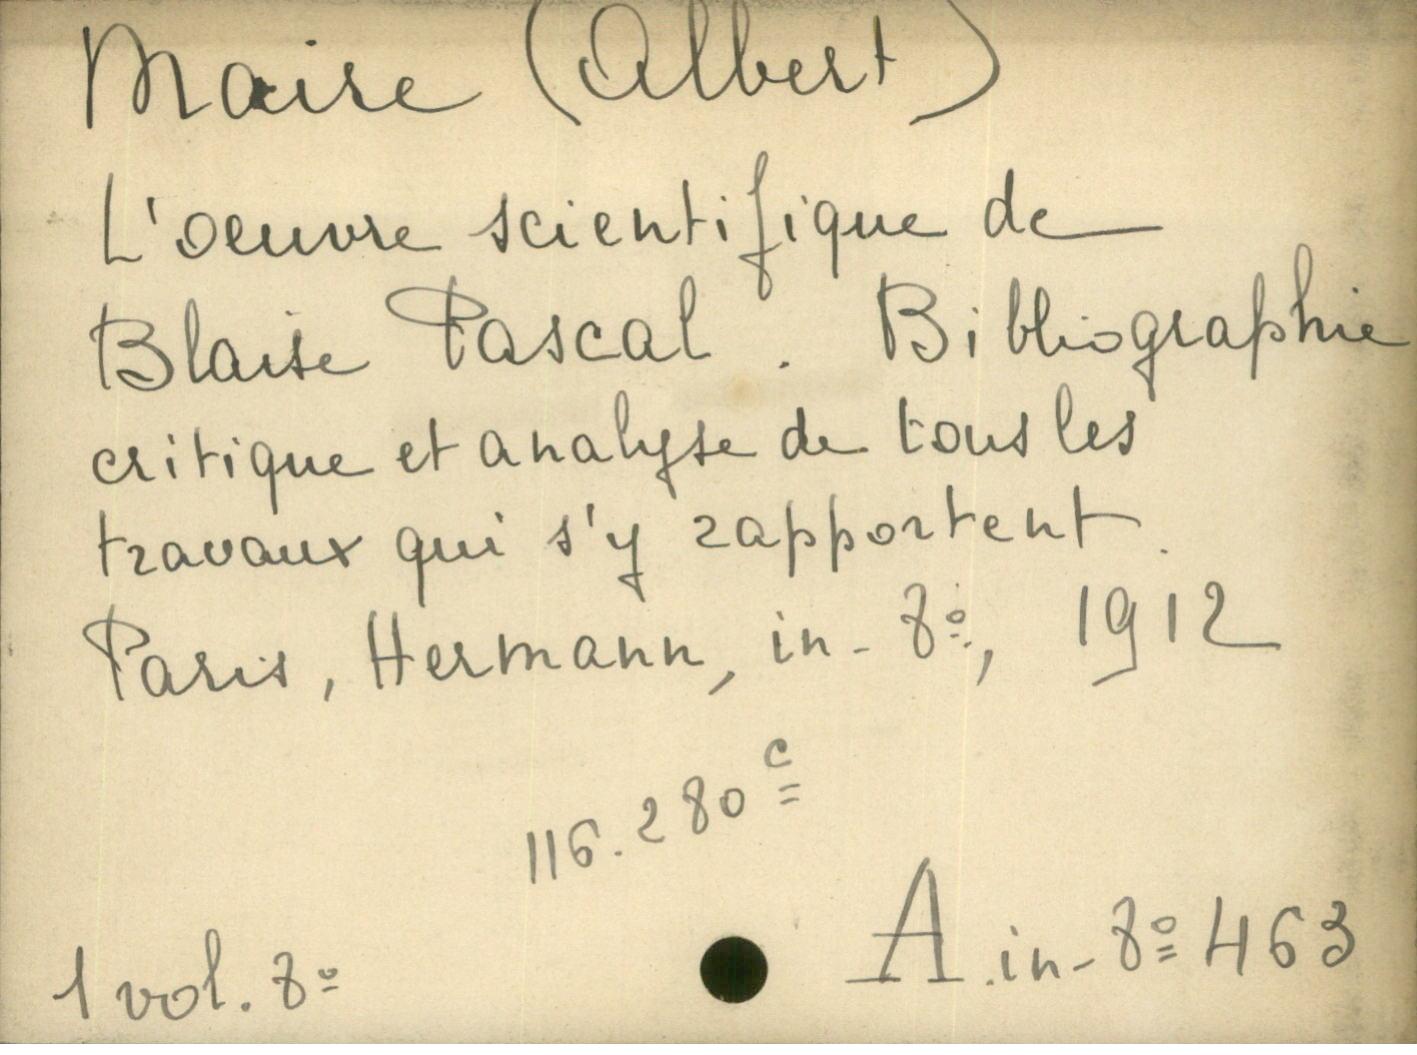 Maire (Albert)
L'oeuvre scientifique de
Blaise Pascal. Bibliographie
critique et analyse de tous les
travaux qui s'y rapportent.
Paris, Hermann, in-8º, 1912
116.280 c
A.in-8º 463
1 vol. 8º